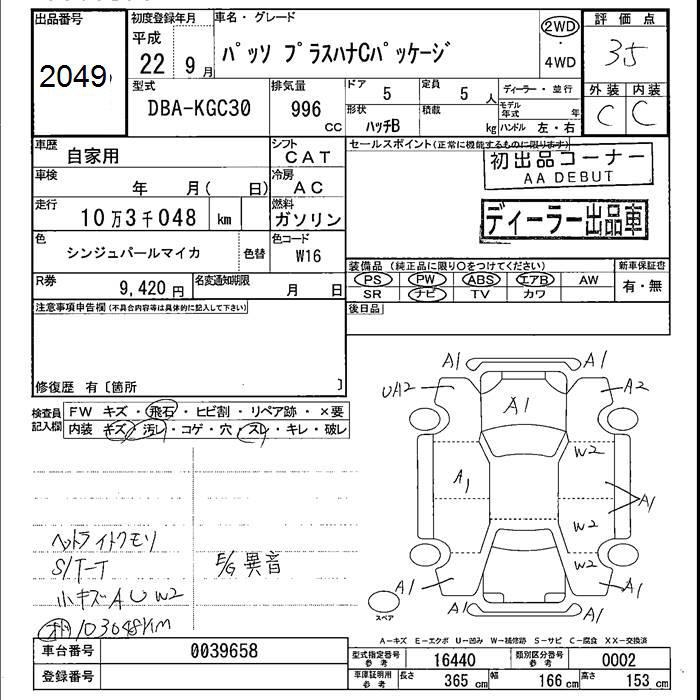 出品番号
2049
初度登録年月
平成
22 9月
車名・グレード
パッソ プラスハナCパッケージ
2WD
・
4WD
評価点
3.5
型式
DBA-KGC30
排気量
996
CC
ドア 5
定員 5 人
形状
ハッチB
積載
kg
ディーラー・並行
モデル年式 年
ハンドル 左・右
外装 内装
C C
車歴
自家用
シフト
CAT
車検
年 月( 日)
冷房
AC
走行
10万3千048 km
燃料
ガソリン
色
シンジュパールマイカ
色替
色コード
W16
R券
9,420 円
名変通知期限
月 日
セールスポイント(正常に機能するものに限ります)
初出品コーナー
AA DEBUT
ディーラー出品車
装備品 (純正品に限り○をつけてください)
PS PW ABS エアB AW
SR ナビ TV カワ
新車保証書
有・無
後日品
注意事項申告欄(不具合内容等は具体的に記入して下さい)
修復歴 有〔箇所 〕
検査員
記入欄
FW キズ・飛石・ヒビ割・リペア跡・×要
内装 キズ・汚レ・コゲ・穴・スレ・キレ・破レ
ヘットライトクモリ
S/T-T
小キズAUW2
E/G異音
103048KM
A1 A1
UA2 A2
A1
W2
A1
A1
W2
W2
A1 A1
A1 A1
スペア
A-キズ E-エクボ U-凹み W-補修跡 S-サビ C-腐食 XX-交換済
車台番号
0039658
登録番号
型式指定番号
参考
16440
類別区分番号
参考
0002
車庫証明用
参考
長さ 365 cm
幅 166 cm
高さ 153 cm